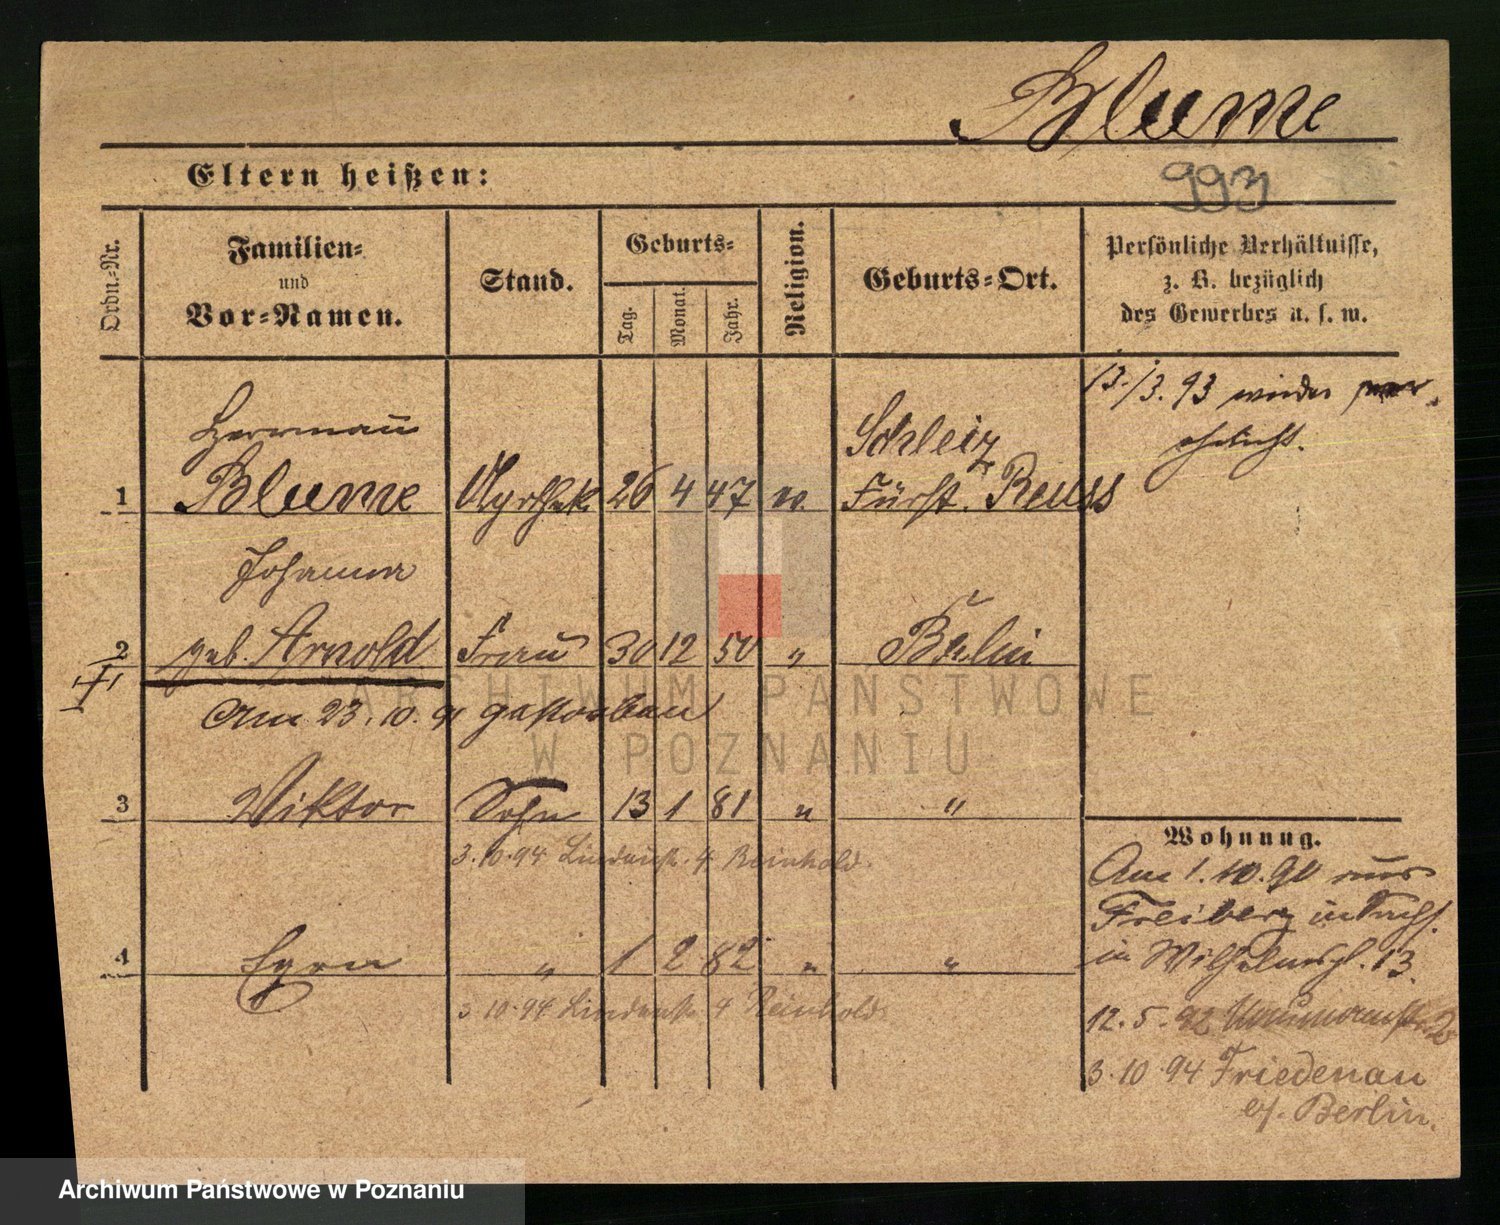 Blume
Eltern heißen:
993
Ordn.-Nr.
Familien-
und
Vor-Namen.
Stand.
Geburts-
Tag.
Monat.
Jahr.
Religion.
Geburts-Ort.
Persönliche Verhältnisse,
z. B. bezüglich
des Gewerbes u. s. w.
13./3. 93 wieder ver-
ehelicht.
Herrmann
Schleiz
1 Blume Apothek. 26 4 47 ev. Fürst. Reuss
Johanna
2 geb. Arnold Frau 30 12 50 " Berlin
Am 23. 10. 91 gestorben
3 Viktor Sohn 13 1 81 " "
3. 10. 94 Lindenstr. 4 Reinhold.
4 " 1 2 82 " "
3. 10. 94 Lindenstr. 4 Reinhold.
Wohnung.
Am 1. 10. 90 aus
Freiberg in Sachs.
in Wilhelmspl. 13.
12. 5. 92 Naumannstr. 2
3. 10. 94 Friedenau
b/. Berlin.
ARCHIWUM PAŃSTWOWE
W POZNANIU
Archiwum Państwowe w Poznaniu